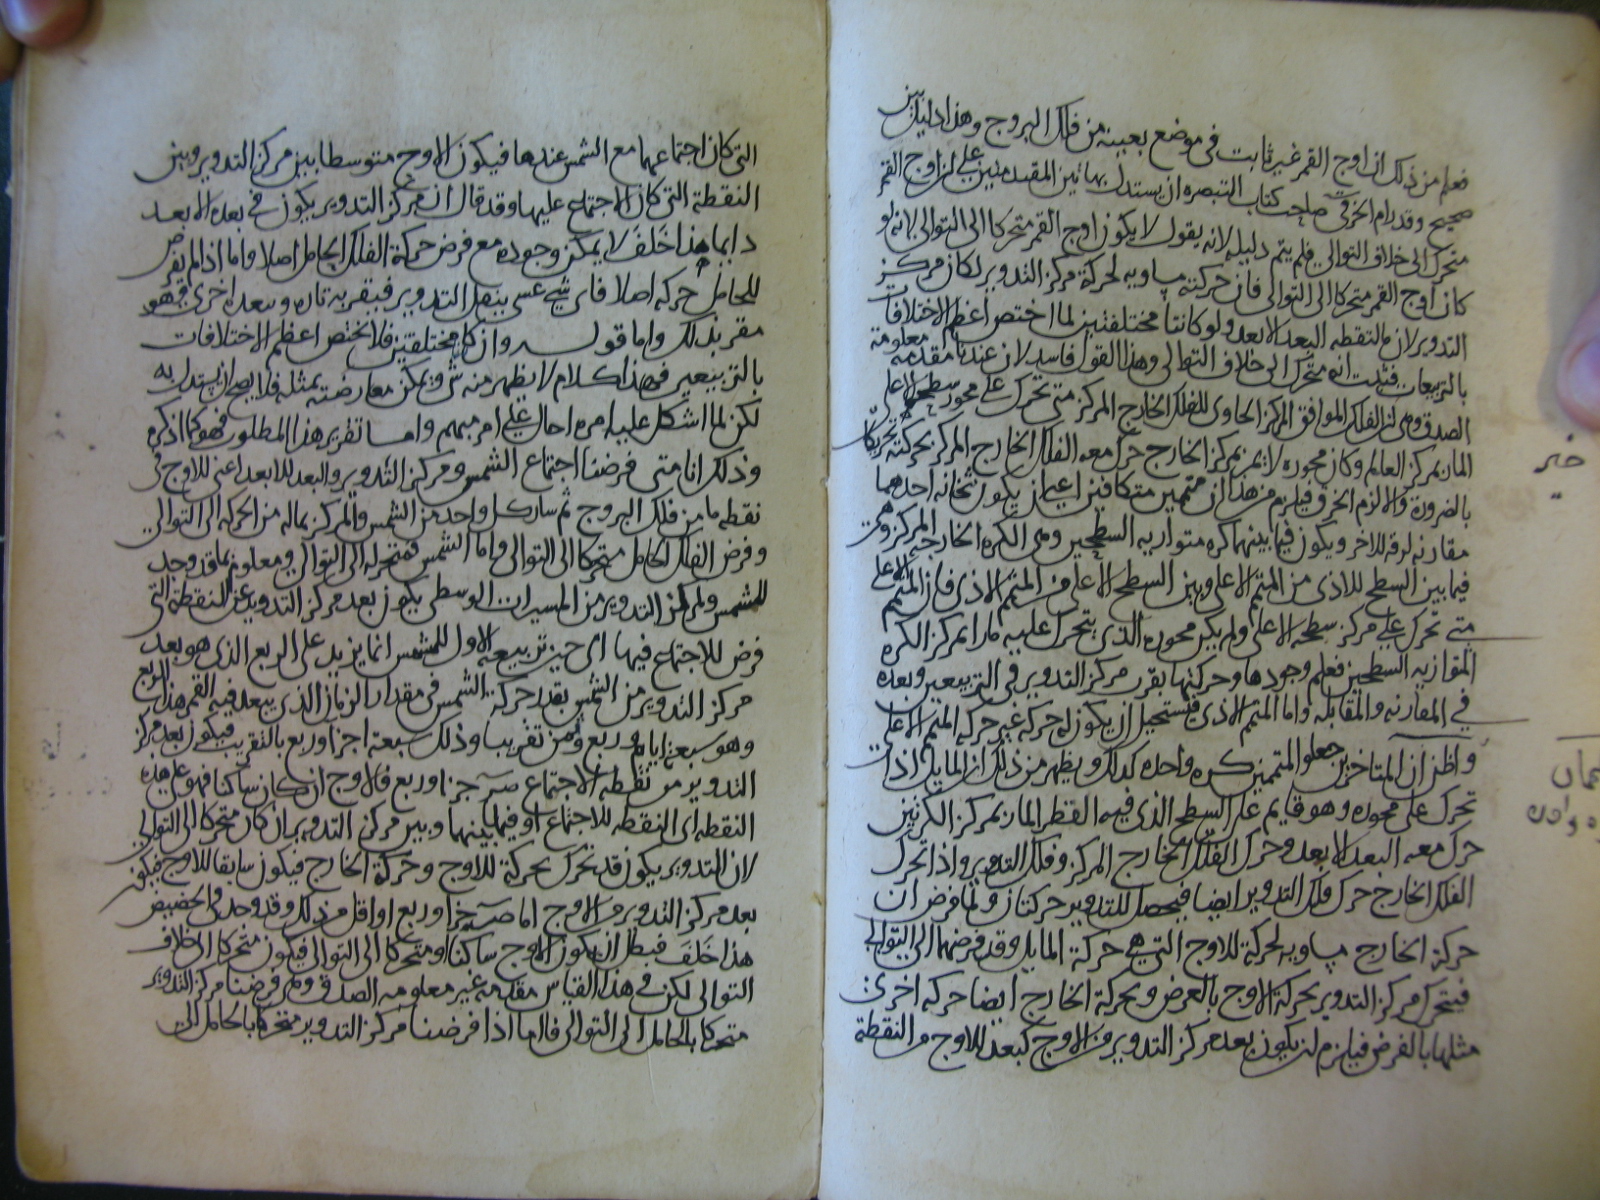 فعلم من ذلك ان اوج القمر غير ثابت في موضع بعينه من فلك البروج وهذا دليل بين
صحيح وقد رام الخرقى صاحب كتاب التبصره ان يستدل بهاتين المقدمتين على ان اوج القمر
متحرك الى خلاف التوالي فلم يتم دليله لانه يقول لا يكون اوج القمر متحركا الى التوالي لانه لو
كان اوج القمر متحركا الى التوالى فان حركته مساويه لحركة مركز التدوير لكان مركز
التدوير لازما لنقطه البعد الابعد ولو كانتا مختلفتين لما اختص اعظم الاختلافات
بالتربيعات فثبت انه متحرك الى خلاف التوالى وهذا القول فاسد لان عندنا مقدمه معلومة
الصدق وهى ان الفلك الموافق المركز الحاوى للفلك الخارج المركز متى تحرك على محور سطحه الاعلى
المار بمركز العالم وكان محوره لا يمر بمركز الخارج حرك معه الفلك الخارج المركز بحركته تحريكا
بالضرورة والا لزم الخرق فيلزم من هذا ان متممين متكافئين اعنى ان يكون ثخانه احدهما
مقارنه لرقه الاخر ويكون فيما بينهما كره متوازيه السطحين وهى الكره الخارجه المركز وهى
فيما بين السطح الادنى من المتمم الاعلى وبين السطح الاعلى من المتمم الادنى فان المتمم الاعلى
متى تحرك على مركز سطحه الاعلى ولم يكن محوره الذى يتحرك عليه مارا بمركز الكره
المتوازيه السطحين فعلم وجودها وحركتها بقرب مركز التدوير فى التربيعين وبعده
في المقارنه والمقابله واما المتمم الادنى فيستحيل ان يكون له حركه غير حركه المتمم الاعلى
واظن ان المتاخرين جعلوا المتممين كره واحده كذلك ويظهر من ذلك ان المايل اذا
تحرك على محوره وهو قايم على السطح الذى فيه القطر المار بمركز الكرتين
حرك معه البعد الابعد وحرك الفلك الخارج المركز وفلك التدوير واذا تحرك
الفلك الخارج حرك فلك التدوير ايضا فيحصل للتدوير حركتان ولما فرض ان
حركة الخارج مساويه لحركة الاوج التى هى حركة المايل وقد فرضهما الى التوالى
فيتحرك مركز التدوير بحركة الاوج بالعرض وبحركة الخارج ايضا حركه اخرى
مثلها بالفرض فيلزم ان يكون بعد مركز التدوير من الاوج كبعد الاوج من النقطة
التى كان اجتماعهما مع الشمس عندها فيكون الاوج متوسطا بين مركز التدوير وبين
النقطة التى كان الاجتماع عليها وقد قال ان مركز التدوير يكون في بعده الابعد
دايما هذا خلف لا يمكن وجوده مع فرض حركة الفلك الحامل اصلا واما اذا لم يفرض
للحامل حركه اصلا فاى شى عسى ينقل التدوير فيقربه تاره ويبعده اخرى وهو
مقر بذلك واما قوله وان كانا مختلفتين فلا يختص اعظم الاختلافات
بالتربيعين فهذا كلام لا يظهر منه شى ويمكن معارضته بمثله فلا يصح ان يستدل به
لكن لما اشكل عليه امره احال على امر مبهم واما تقرير هذا المطلوب فهو كما اذكره
وذلك انا متى فرضنا اجتماع الشمس ومركز التدوير والبعد الابعد اعنى الاوج فى
نقطه ما من فلك البروج ثم سار كل واحد من الشمس والمركز بما له من الحركه الى التوالي
وفرض الفلك الحامل متحركا الى التوالى واما الشمس فمتحركه الى التوالي ومعلوم مما قد وجد
للشمس ولمركز التدوير من المسيرات الوسطى يكون بعد مركز التدوير عن النقطة التى
فرض الاجتماع فيها اى حين تربيعه الاول للشمس انما يزيد على الربع الذى هو بعد
مركز التدوير من الشمس بقدر حركة الشمس فى مقدار الزمان الذى يبعد فيه القمر هذا الربع
وهو سبعة ايام وربع وثمن تقريبا وذلك سبعة اجزا وربع بالتقريب فيكون بعد مركز
التدوير من نقطة الاجتماع جزا وربع فالاوج ان كان ساكنا فهو على هذه
النقطه اى النقطه للاجتماع او فيما بينهما وبين مركز التدوير بان كان متحركا الى التوالي
لان التدوير يكون قد تحرك بحركة الاوج وحركة الخارج فيكون سابقا للاوج فيكون
بعد مركز التدوير من الاوج اما جزا وربع او اقل من ذلك وقد وجد فى الحضيض
هذا خلف فبطل ان يكون الاوج ساكنا او متحركا الى التوالى فيكون متحركا الى خلاف
التوالى لكن فى هذا القياس مقدمه غير معلومه الصدق ولم فرضنا مركز التدوير
متحركا بالحامل الى التوالى فاما اذا فرضنا مركز التدوير متحركا بالحامل الى